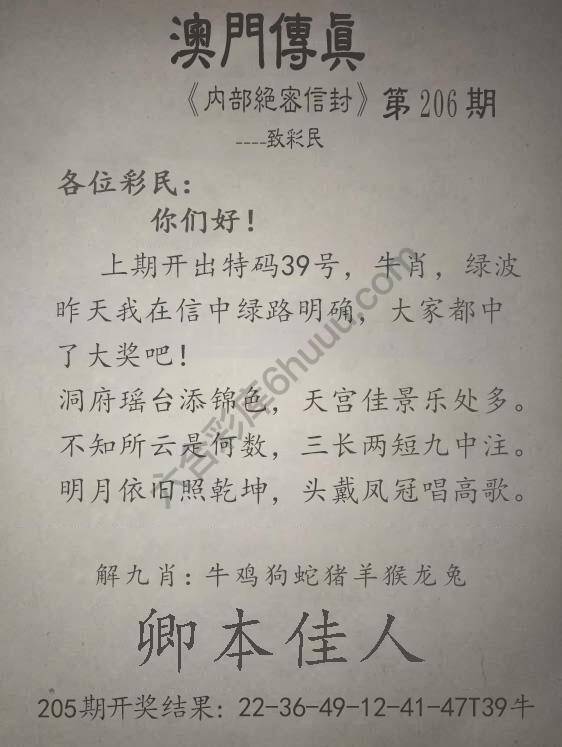 澳門傳真
《内部絕密信封》第206期
----致彩民
各位彩民：
你们好！
上期开出特码39号，牛肖，绿波
昨天我在信中绿路明确，大家都中
了大奖吧！
洞府瑶台添锦色，天宫佳景乐处多。
不知所云是何数，三长两短九中注。
明月依旧照乾坤，头戴凤冠唱高歌。
解九肖：牛鸡狗蛇猪羊猴龙兔
卿本佳人
205期开奖结果：22-36-49-12-41-47T39牛
六合彩库6huuu.com